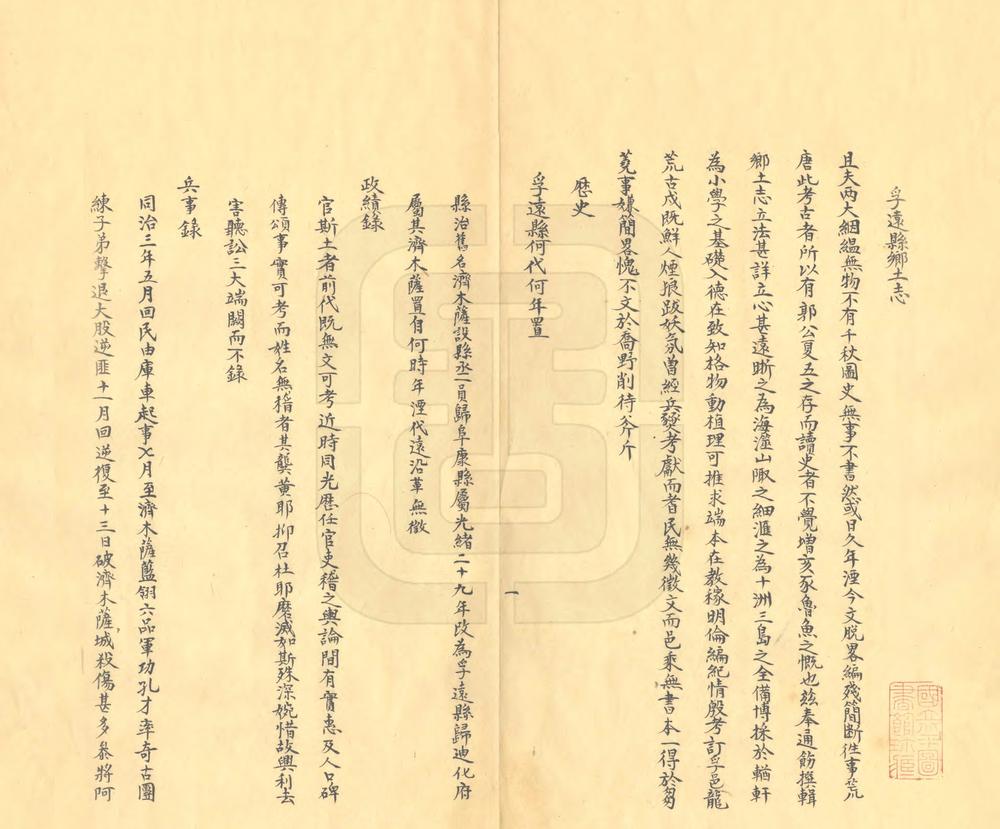 孚遠縣鄉土志
且夫兩大絪縕無物不有千秋圖史無事不書然或日久年湮今文脫畧編殘簡斷往事荒
唐此考古者所以有郭公夏五之存而讀史者不覺增亥豕魯魚之慨也茲奉通飭撰輯
鄉土志立法甚詳立心甚遠晰之為海澨山陬之細滙之為十洲三島之全備博採於輶軒
為小學之基礎入德在致知格物動植理可推求端本在教稼明倫編紀情殷考訂孚邑龍
荒古戍既鮮人煙狼跋妖氛曾經兵燹考獻而耆民無幾徵文而邑乘無書本一得於芻
蕘事嫌簡畧愧不文於喬野削待斧斤
歷史
孚遠縣何代何年置
縣治舊名濟木薩設縣丞一員歸阜康縣屬光緒二十九年改為孚遠縣歸迪化府
屬其濟木薩置自何時年湮代遠沿革無徵
政績錄
官斯土者前代既無文可考近時同光歷任官吏稽之輿論間有實惠及人口碑
傳頌事實可考而姓名無稽者其龔黃耶抑召杜耶磨滅如斯殊深婉惜故興利去
害聽訟三大端闕而不錄
兵事錄
同治三年五月回民由庫車起事七月至濟木薩藍翎六品軍功孔才率奇古團
練子弟擊退大股逆匪十一月回逆復至十三日破濟木薩城殺傷甚多參將阿
一